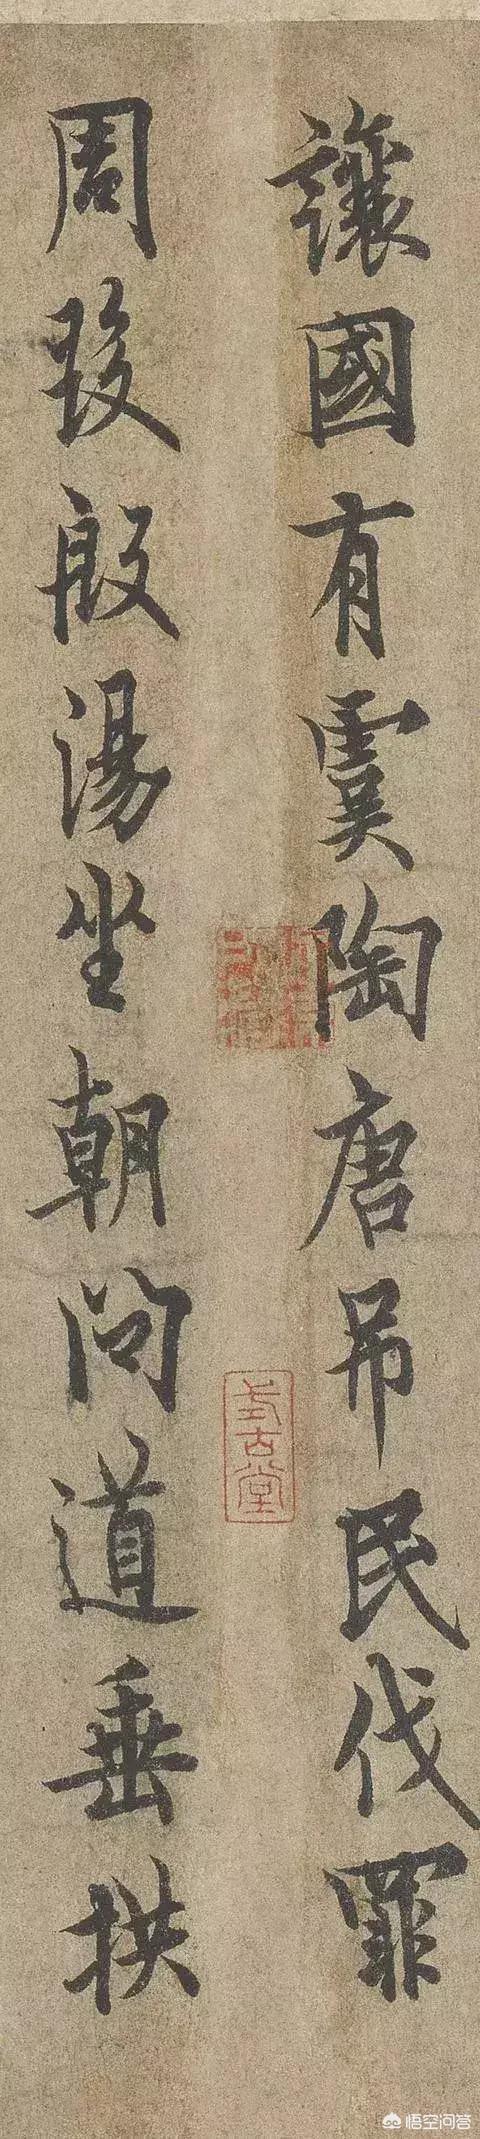 讓國有虞陶唐吊民伐罪
周發殷湯坐朝問道垂拱
式古堂
悟空问答